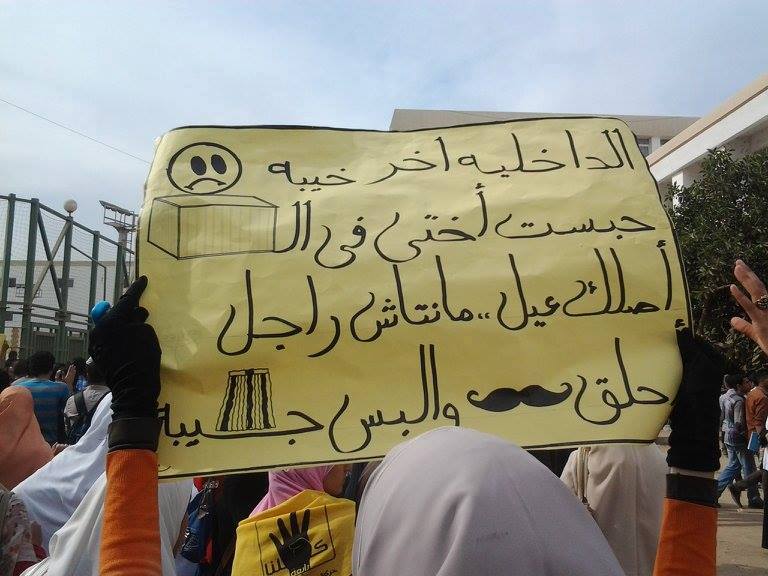 الداخليه أخر خيبه
حبست أختى فى ال
أصلك عيل ،، مانتاش راجل
حلق والبس جيبه
كلنا
رابعة